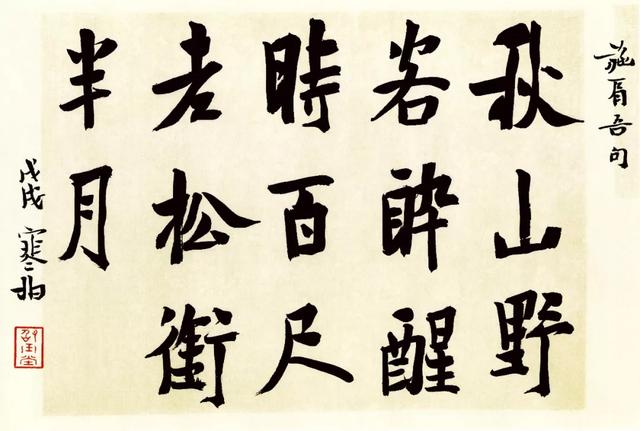 施肩吾句
秋山野
客醉醒
時百尺
老松銜
半月
戊戌